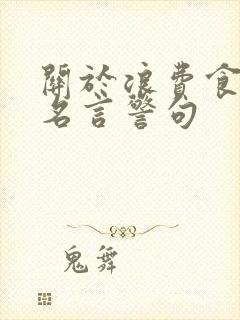 關於浪費食
名言警句
鬼舞